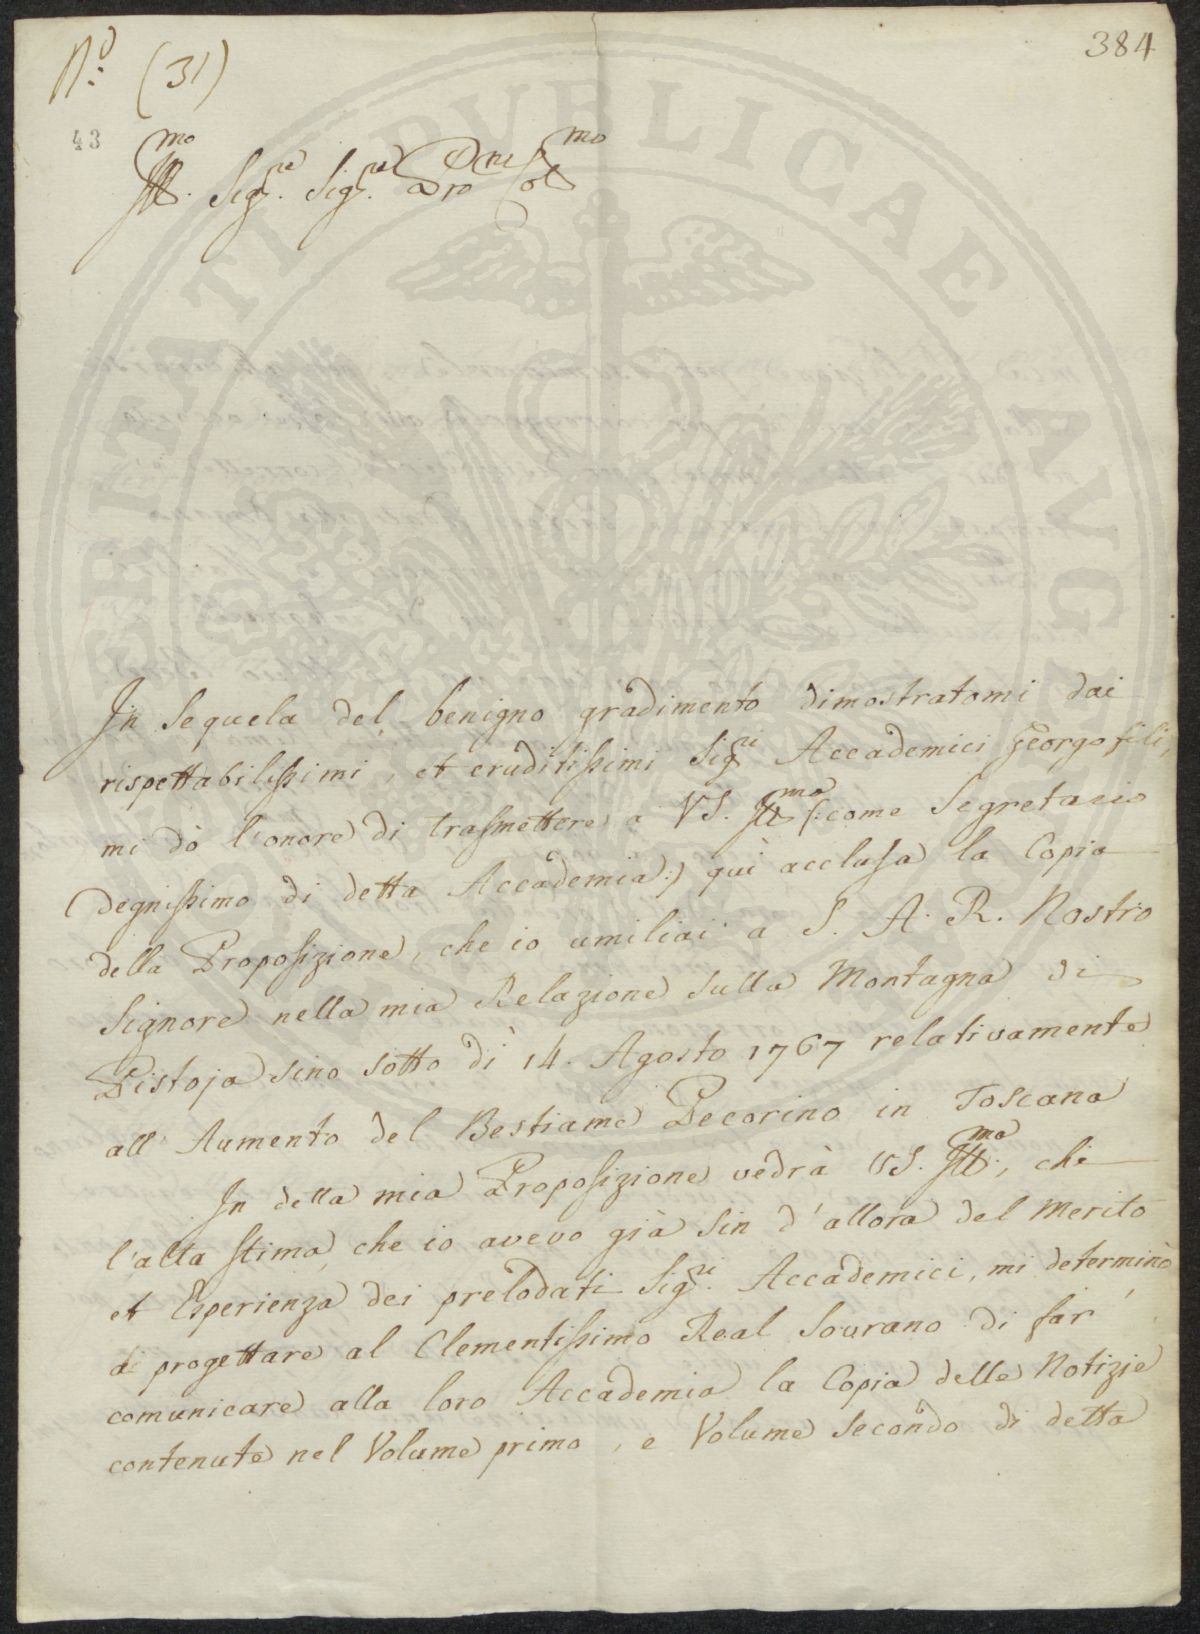 N.º (31)
384
43
Ill.mo Sig.re Sig.re Pro͠n Col.mo
In Sequela del benigno gradimento dimostratomi dai
rispettabilissimi, et eruditissimi Sig.ri Accademici Georgofili,
mi dò l'onore di trasmettere à VS. Ill.ma (:come Segretario
Degnissimo di detta Accademia:) quì acclusa la Copia
della Proposizione, che io umiliai a S. A. R. Nostro
Signore nella mia Relazione sulla Montagna di
Pistoja sino sotto dì 14. Agosto 1767 relativamente
all' Aumento del Bestiame Pecorino in Toscana
In detta mia Proposizione vedrà VS. Ill.ma, che
l'alta stima, che io avevo già sin d'allora del Merito
et Esperienza dei prelodati Sig.ri Accademici, mi determinò
di progettare al Clementissimo Real Sovrano di far
comunicare alla loro Accademia la Copia delle Notizie
contenute nel Volume primo, e Volume secondo di detta
PUBLICAE